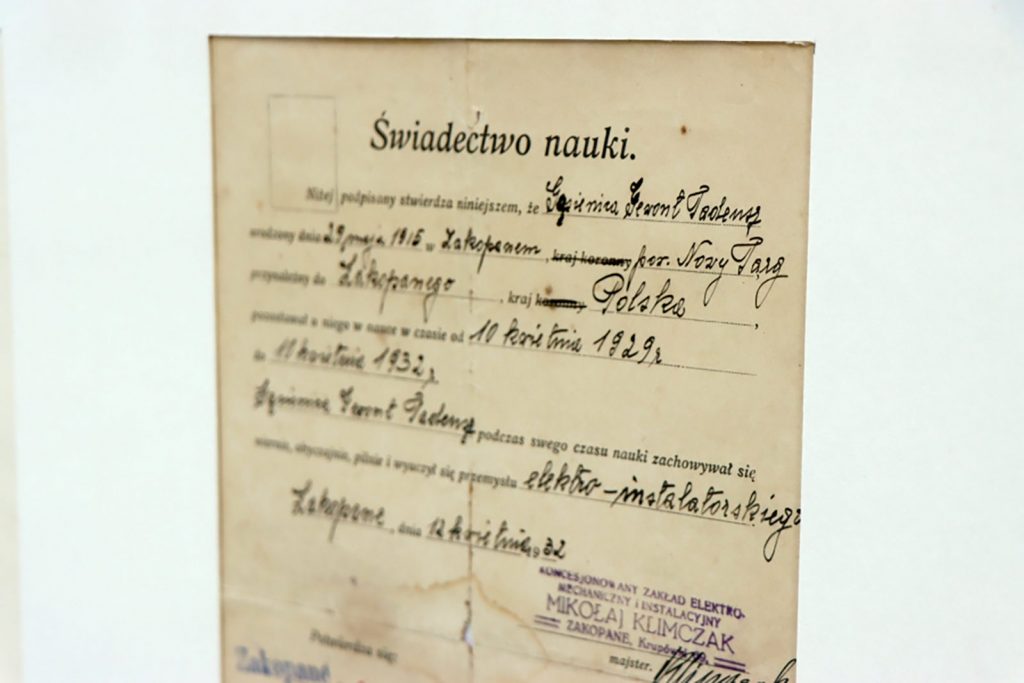 Świadectwo nauki.
Niżej podpisany stwierdza niniejszem, że Gąsienica Gewont Tadeusz
urodzony dnia 29 maja 1915 w Zakopanem, kraj koronny pow. Nowy Targ
przynależny do Zakopanego, kraj koronny Polska,
pozostawał u niego w nauce w czasie od 10 kwietnia 1929 r
do 10 kwietnia 1932 r
Gąsienica Gewont Tadeusz podczas swego czasu nauki zachowywał się
wiernie, obyczajnie, pilnie i wyuczył się przemysłu elektro-instalatorskiego
Zakopane, dnia 12 kwietnia 1932
KONCESJONOWANY ZAKŁAD ELEKTRO-
MECHANICZNY i INSTALACYJNY
MIKOŁAJ KLIMCZAK
ZAKOPANE, Krupówki
Potwierdza się:
majster.
Zakopane